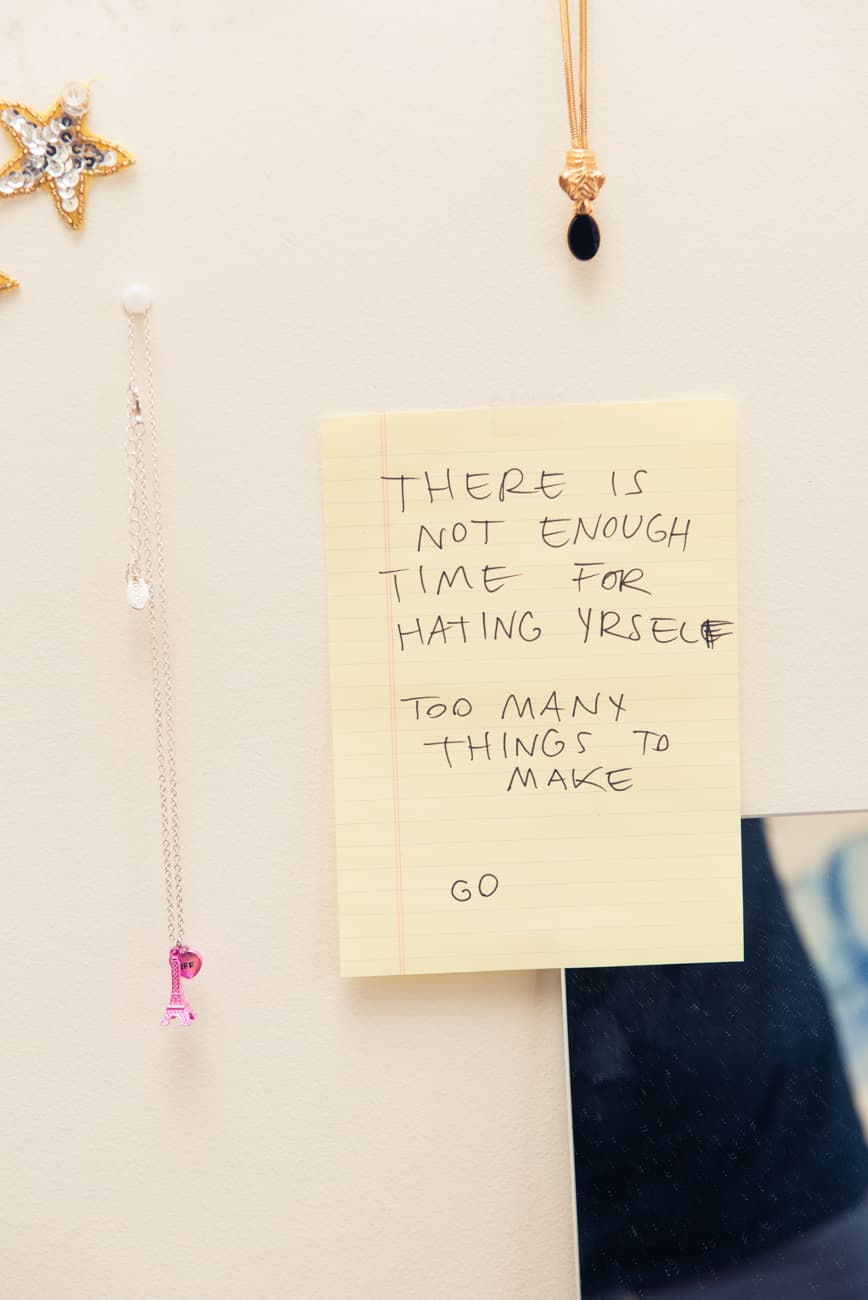 THERE IS
NOT ENOUGH
TIME FOR
HATING YRSELF
TOO MANY
THINGS TO
MAKE
GO